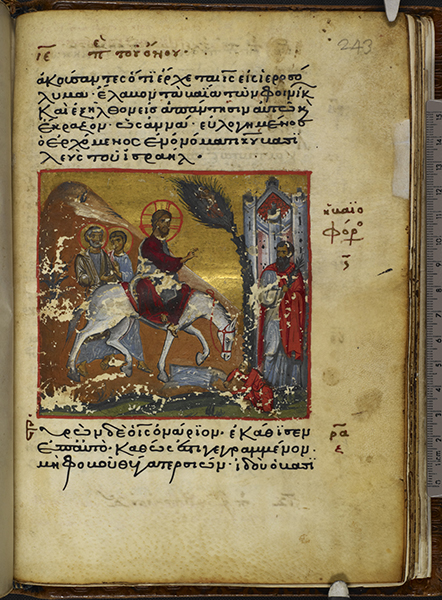 243
ιε π τοῦ ὄνου·
ἀκούσαντες ὅτι ἔρχεται ι̅ς̅ εἰς ἱεροσό
λυμα· ἔλαβον τὰ βαΐα τῶν φοινίκ
καὶ ἐξῆλθον εἰς ἀπάντησιν αὐτῶ κ
ἔκραζον· ὡσαννά· εὐλογημένος
ὁ ἐρχόμενος ἐν ὀνόματι κ̅υ̅ βασι
λεὺς τοῦ ἰσραήλ·
εὑρὼν δὲ ὁ ι̅ς̅ ὀνάριον· ἐκάθισεν
ἐπαυτό· καθώς ἐστι γεγραμμένον·
μὴ φοβοῦ θύγατερ σιών· ἰδοὺ ὁ βασι